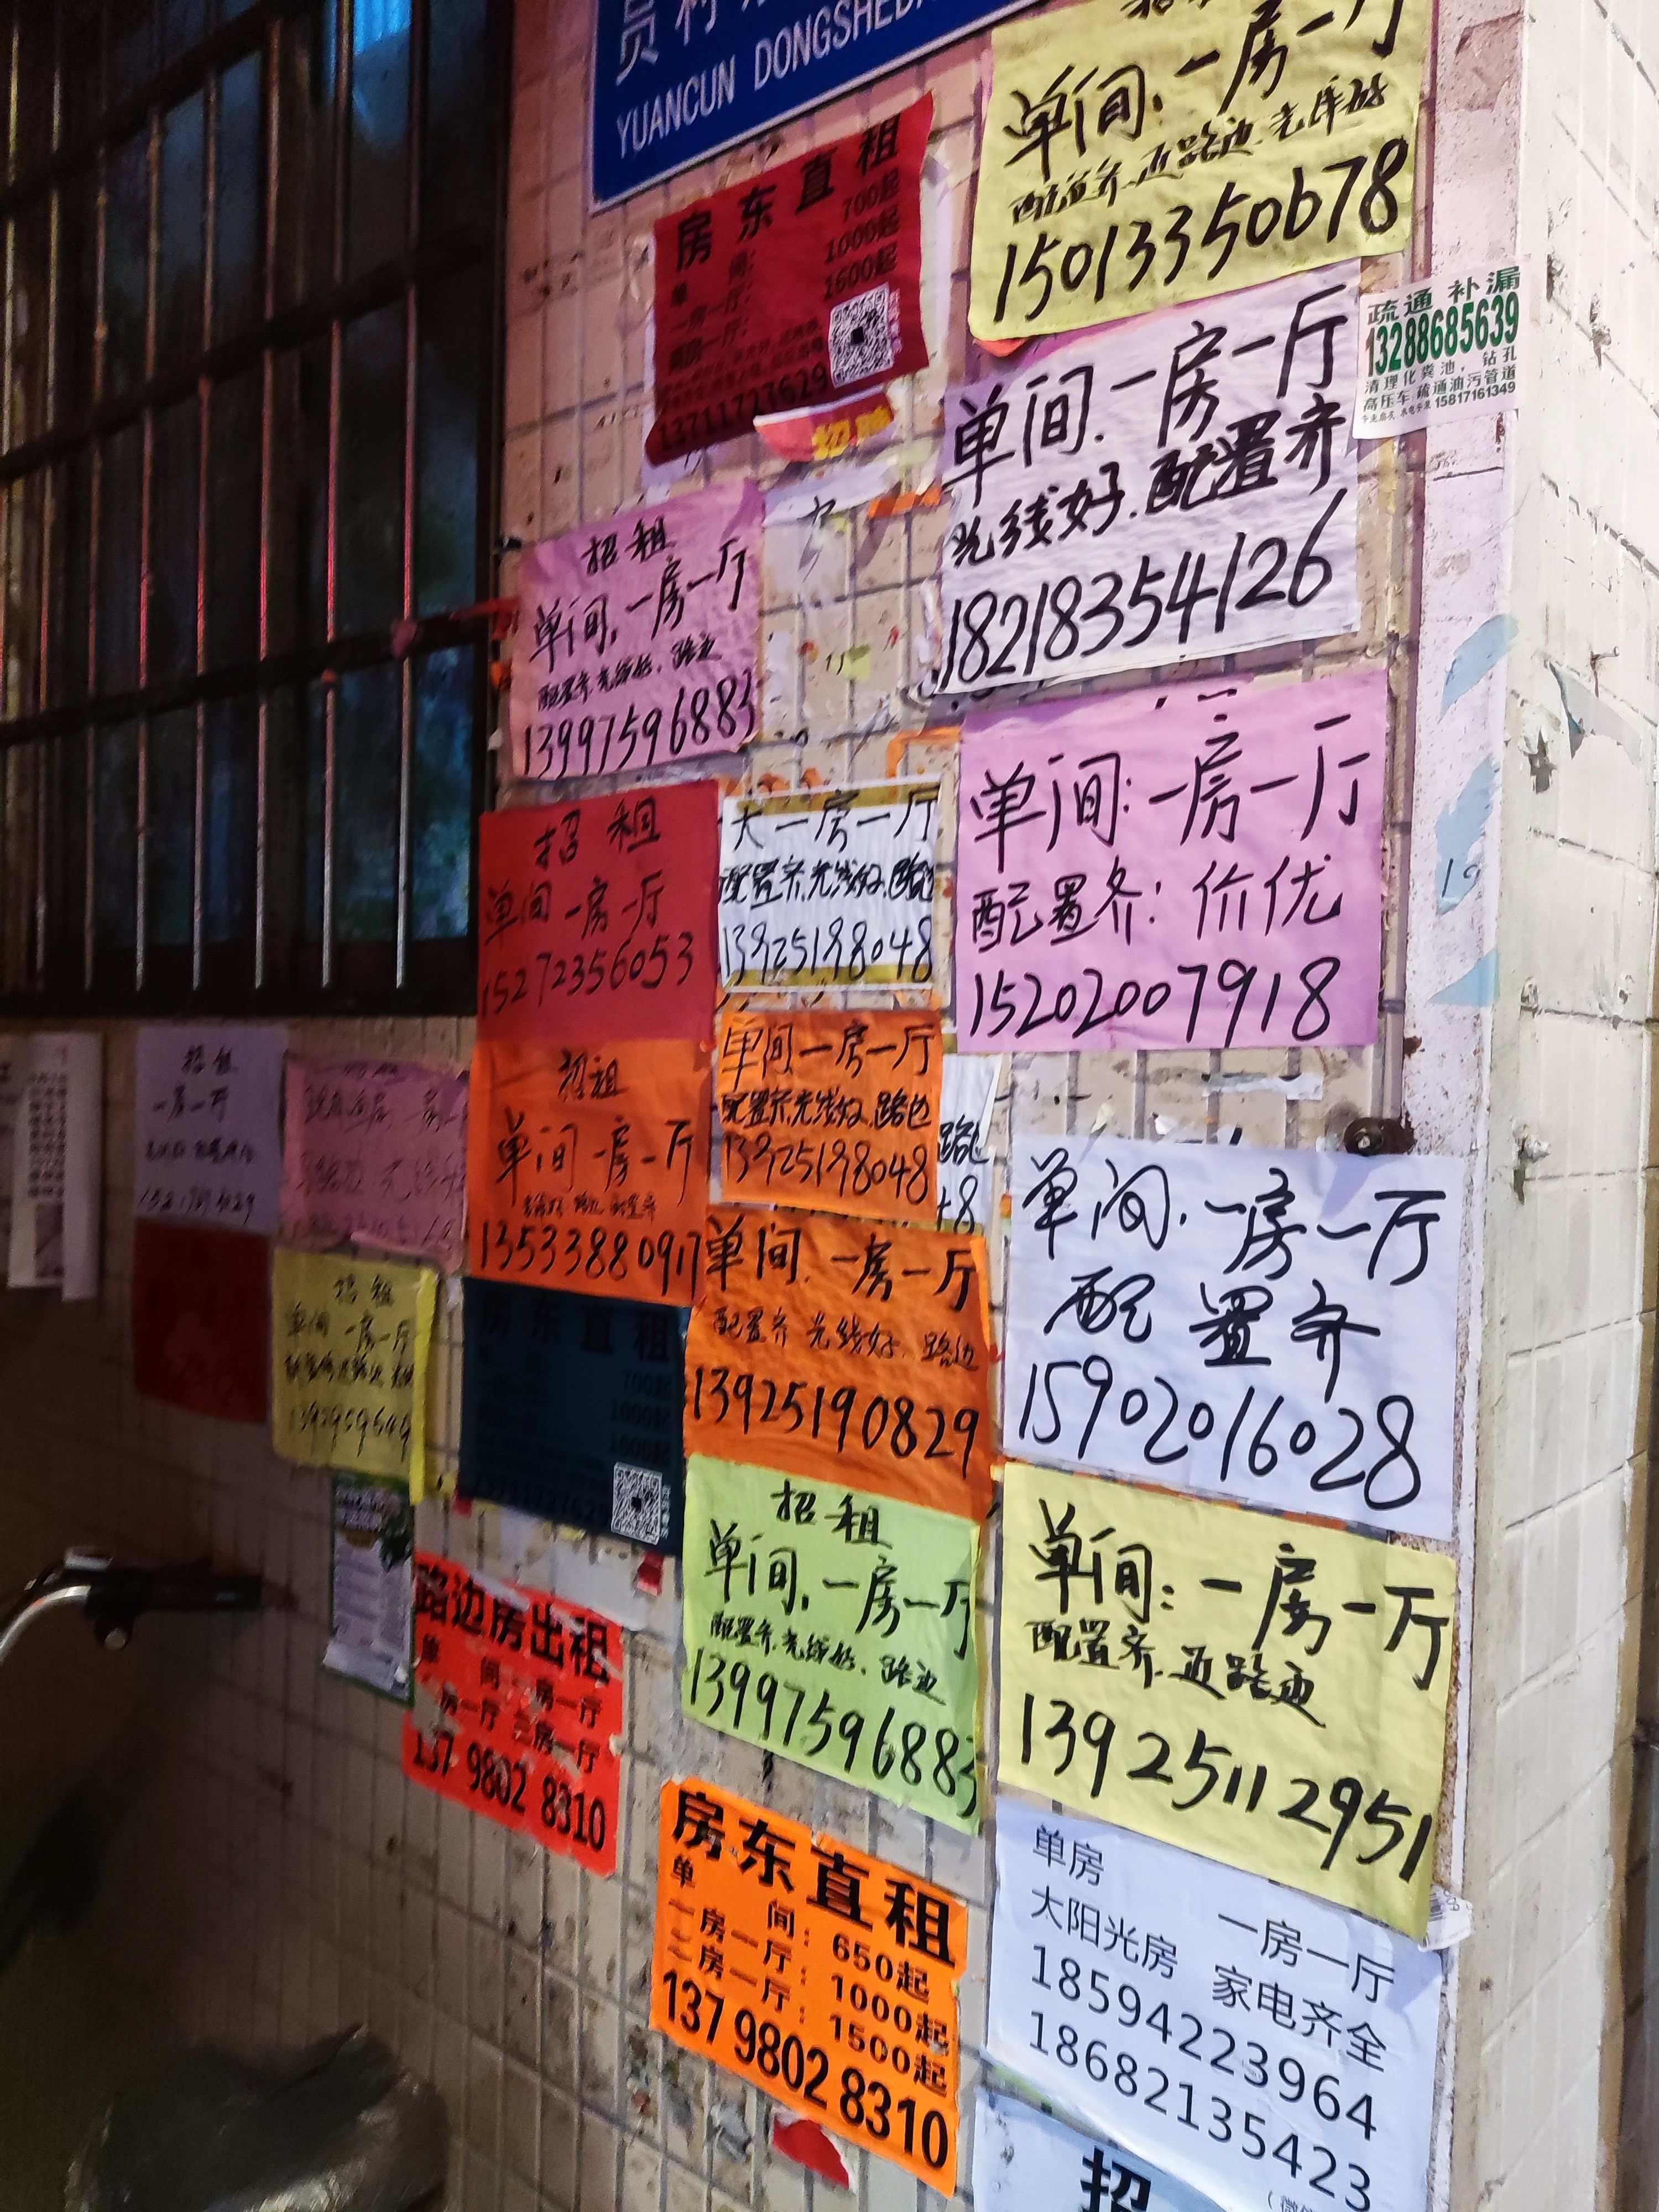 员村
YUANCUN DONGSHEDA
单间, 一房一厅
配置齐.近路边.光库好
15013350678
房东直租
单间: 700起
一房一厅: 1000起
两房一厅: 1600起
疏通 补漏
13288685639
清理化粪池, 钻孔
高压车疏通油污管道
15817161349
单间.一房一厅
光线好.配置齐
18218354126
招租
单间, 一房一厅
配置齐.光线好. 路边
13997596883
招租
单间 一房一厅
15272356053
大一房一厅
配置齐.光线好.路边
13925198048
单间:一房一厅
配置齐: 价优
15202007918
招租
一房一厅
招租
单间 一房一厅
13533880917
单间一房一厅
配置齐.光线好.路边
13925198048
路边
单间, 一房一厅
配置齐
15902016028
招租
单间 一房一厅
单间, 一房一厅
配置齐 光线好. 路边
13925190829
房东直租
700起
1000起
1600起
招租
单间, 一房一厅
配置齐.光线好. 路边
13997596883
单间: 一房一厅
配置齐.近路边
13925112951
路边房出租
单间 一房一厅
房一厅 三房一厅
137 9802 8310
房东直租
单间: 650起
一房一厅: 1000起
二房一厅: 1500起
137 9802 8310
单房 一房一厅
太阳光房 家电齐全
18594223964
18682135423
招